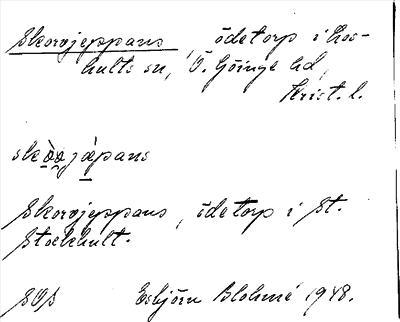 Skorojeppans, ödetorp i Los-
hults sn, Ö. Göinge hd,
Krist. l.
Skorojeppans, ödetorp i St.
Stockhult.
Esbjörn Blohmé 1948.